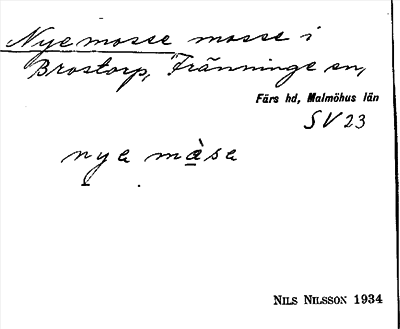 Nye mosse mosse i
Brostorp, Fränninge sn,
Färs hd, Malmöhus län
SV 23
nya màsa
NILS NILSSON 1934